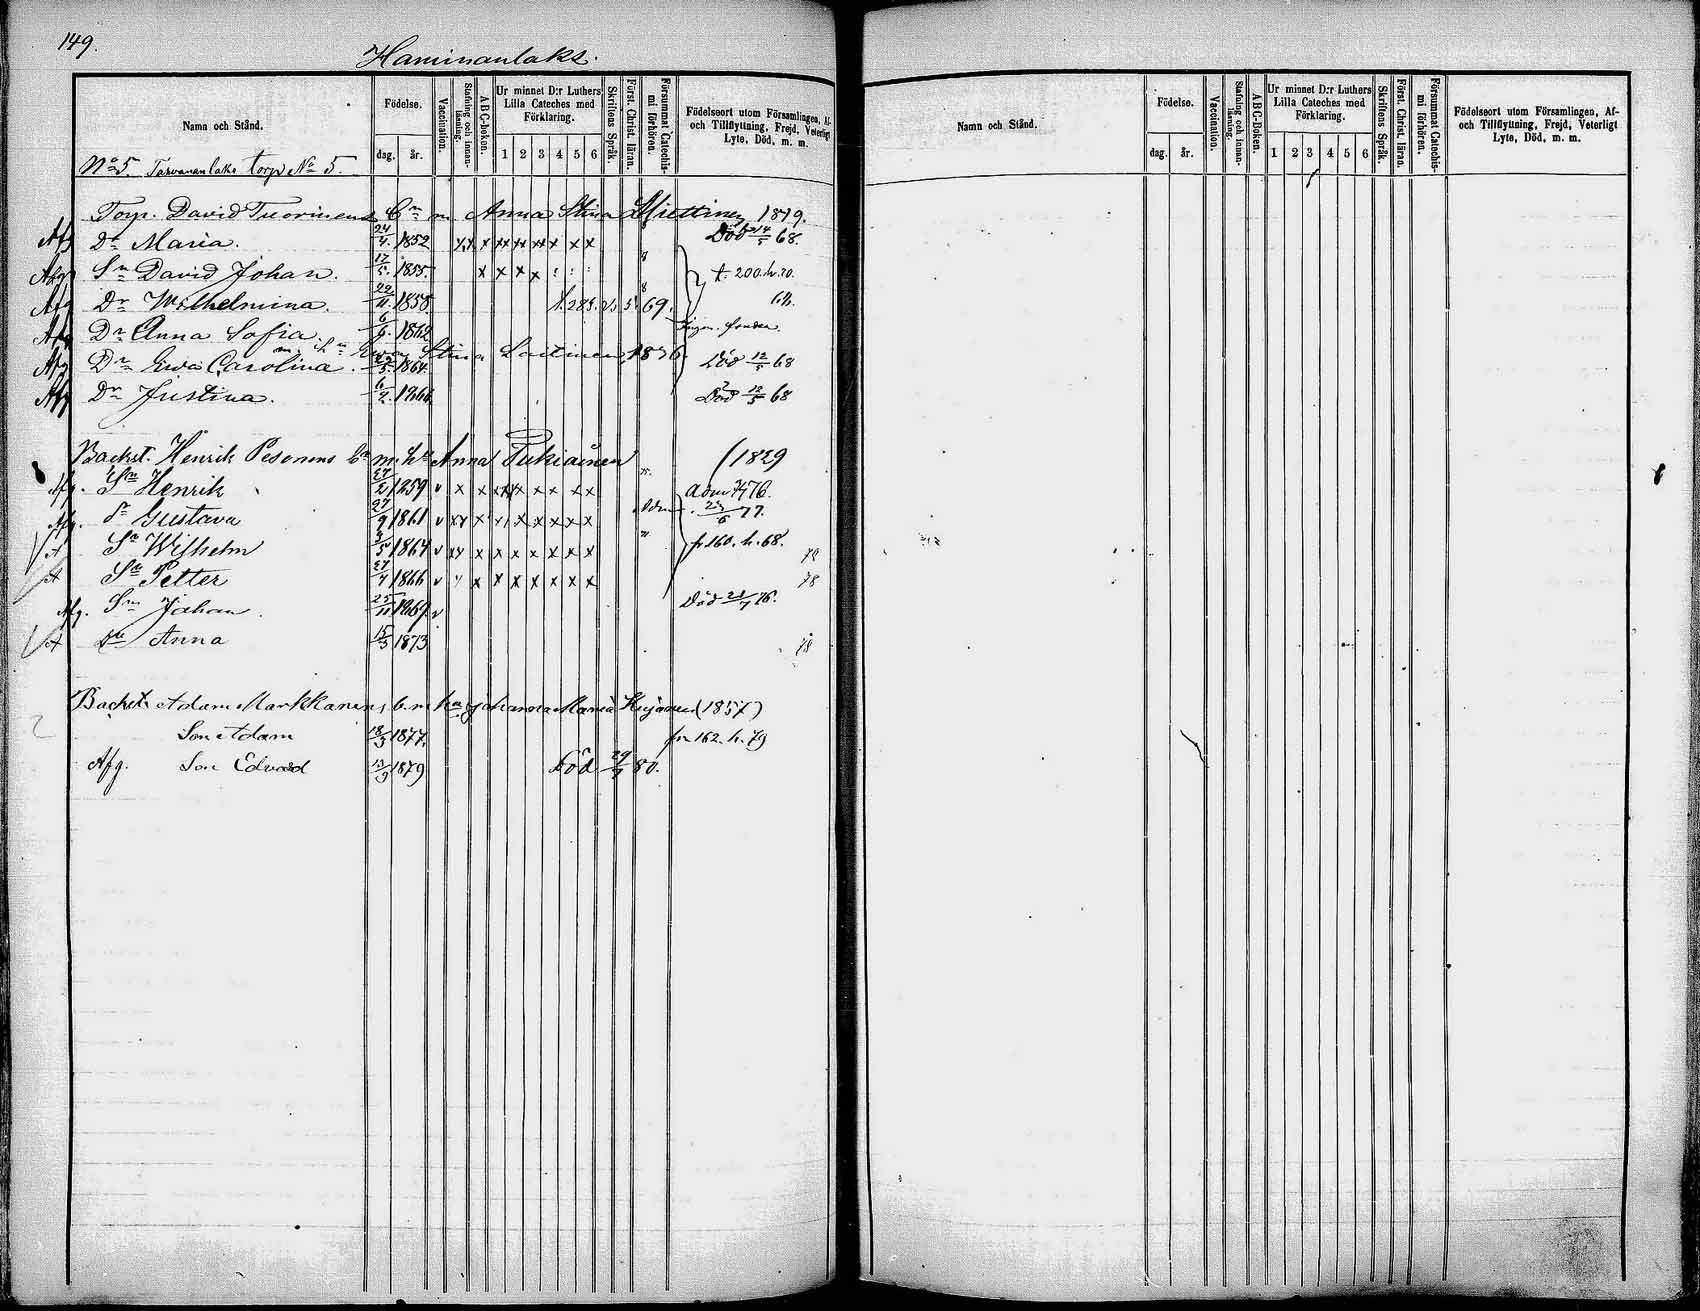 149.
Haminanlaks.
Namn och Stånd.
Födelse.
dag. år.
Vaccination.
Stafning och innanläsning.
ABC-boken.
Ur minnet D:r Luthers Lilla Cateches med Förklaring.
1 2 3 4 5 6
Skriftens Språk.
Först. Christ. läran.
Försummat Catechismi förhören.
Födelseort utom Församlingen, Af- och Tillflyttning, Frejd, Veterligt Lyte, Död, m. m.
No 5. Tarvananlaks torp No 5.
Torp. David Tuorinens Cn m Anna Stina Miettinen 1819.
Afg Dr Maria. 24/4. 1852 x x x xx xx xx x x x Död 14/5 68.
Afg Sn David Johan. 17/5. 1855. x x x x t. 200. h. 70.
Afg Dr Wilhelmina. 22/11. 1858 t. 285. 69.
Afg Dr Anna Sofia. 6/6. 1862
m. hn Ewa Stina Laitinen 1836
Afg Dr Ewa Carolina. /5. 1864. Död 12/5 68
Afg Dr Justina. 6/2. 1866 Död 12/5 68
Backst. Henrik Pesonens Cn m. hn Anna Tukiainen (1829
Afg. Sn Henrik 27/2 1859 v x x x x x x x x adm 76.
Afg. Dr Gustava 27/9 1861 v x x x x x x x x x 23/6 77.
A Sn Wilhelm 3/5 1864 v x x x x x x x x x fr 160. h. 68. 78
A Sn Petter 27/4 1866 v x x x x x x x x 78
Afg. Sn Johan. 25/11 1869. v Död 21/7 76.
A Dr Anna 15/3 1873 78
Backst. Adam Markkanens b. m hn Johanna Maria Kujanen (1857)
Son Adam 18/3 1877. fr 162. h. 79
Afg. Son Edvard 13/9 1879 Död 29/7 80.
Namn och Stånd.
Födelse.
dag. år.
Vaccination.
Stafning och innanläsning.
ABC-Boken.
Ur minnet D:r Luthers Lilla Cateches med Förklaring.
1 2 3 4 5 6
Skriftens Språk.
Först. Christ. läran.
Försummat Catechismi förhören.
Födelseort utom Församlingen, Af- och Tillflyttning, Frejd, Veterligt Lyte, Död, m. m.